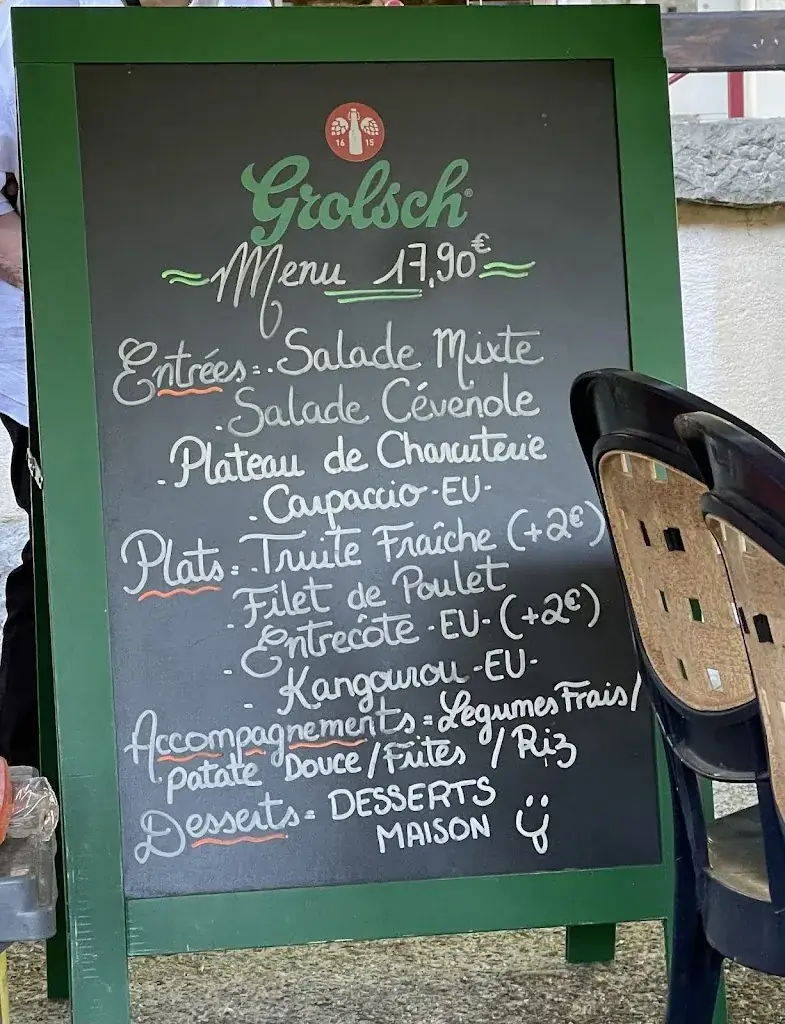 16 15
Grolsch®
Menu 17,90€
Entrées=. Salade Mixte
. Salade Cévenole
. Plateau de Charcuterie
. Carpaccio -EU-
Plats=. Truite Fraîche (+2€)
. Filet de Poulet
. Entrecôte -EU- (+2€)
- Kangourou -EU-
Accompagnements= Légumes Frais/
patate Douce/Frites / Riz
Desserts= DESSERTS
MAISON